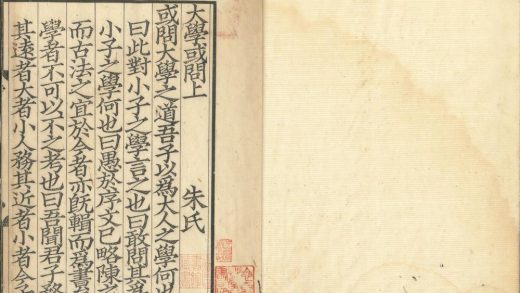 大學或問上 朱氏
或問大學之道吾子以為大人之學何也
曰此對小子之學言之也曰敢問其為
小子之學何也曰愚於序文已略陳之
而古法之宜於今者亦既輯而爲書
學者不可以不之考也曰吾聞君子務
其遠者大者小人務其近者小者今